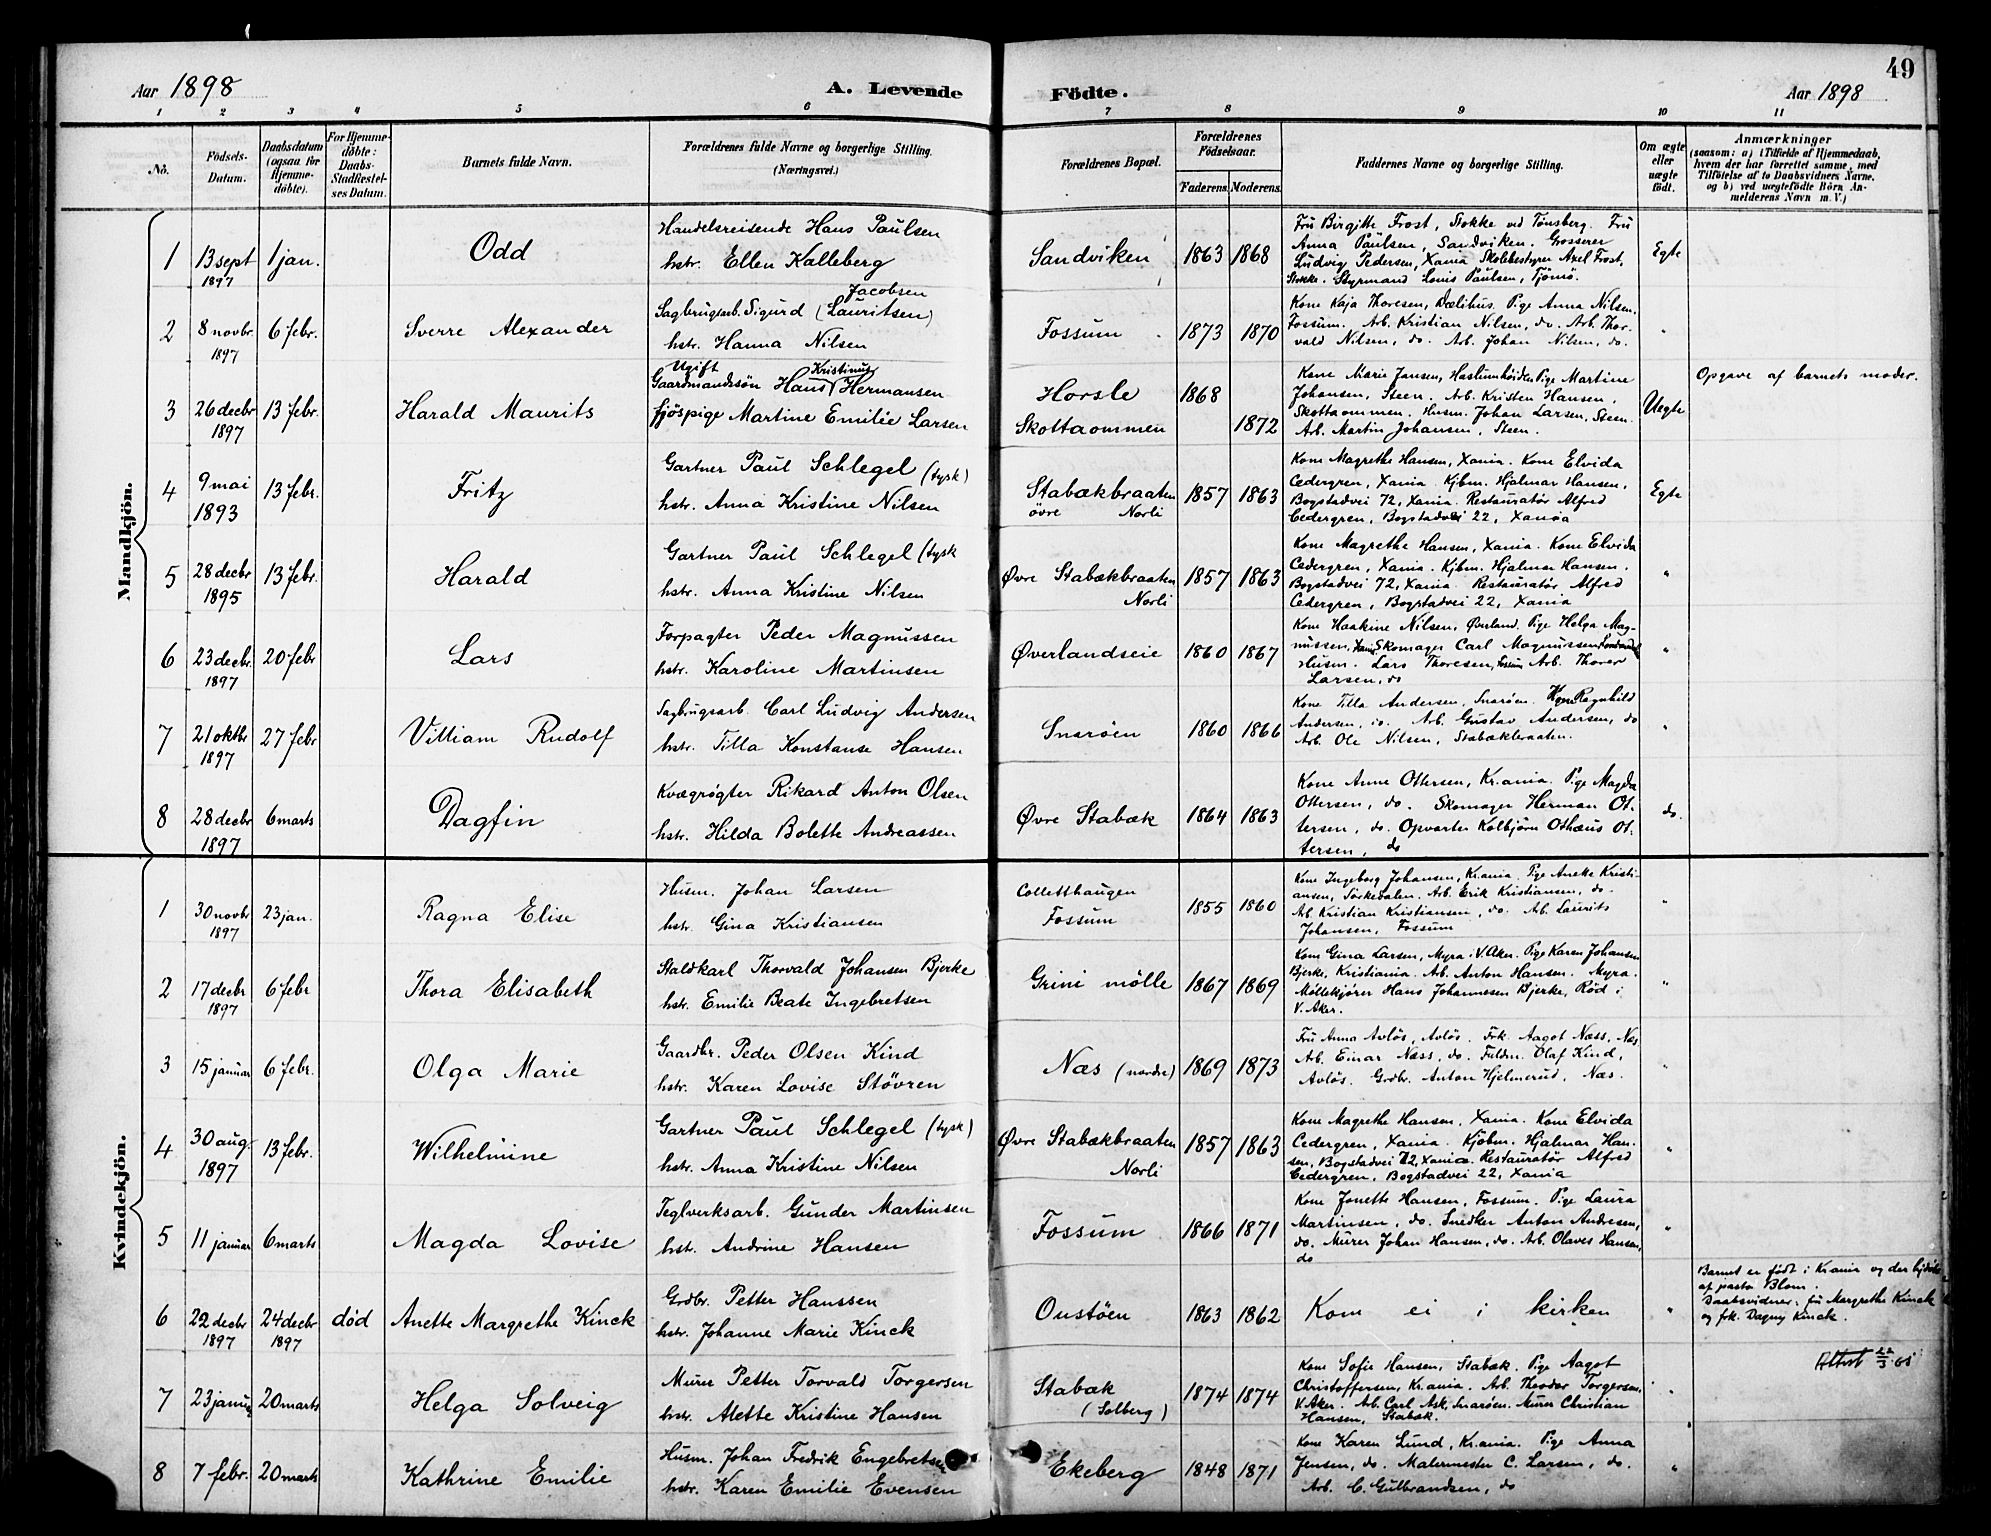 49
Aar 1898
A. Levende Födte.
Aar 1898
1 2 3 4 5 6 7 8 9 10 11
No.
Födsels-Datum.
Daabsdatum (ogsaa for Hjemme-döbte).
For Hjemme-döbte: Daabs-Stadfæstel-ses Datum.
Barnets fulde Navn.
Forældrenes fulde Navne og borgerlige Stilling. (Næringsvei.)
Forældrenes Bopæl.
Forældrenes Födselsaar.
Faderens. Moderens.
Faddernes Navne og borgerlige Stilling.
Om ægte eller uægte födt.
Anmærkninger
(saasom: a) i Tilfælde af Hjemmedaab, hvem der har forrettet samme, med Tilföielse af to Daabsvidners Navne, og b) ved uægtefödte Börn An-melderens Navn m. V.)
Mandkjön.
1 13 sept 1897 1 jan. Odd
Handelsreisende Hans Paulsen
hstr. Ellen Kalleberg
Sandviken 1863 1868
Fru Birgitte Frost, Stokke ved Tønsberg. Fru
Anna Paulsen, Sandviken. Grosserer
Ludvig Pedersen, Xania Skolebestyrer Axel Frost,
Stokke. Styrmand Louis Paulsen, Tjömö.
Egte
2 8 novbr. 1897 6 febr. Sverre Alexander
Jacobsen
Sagbrugsarb. Sigurd (Lauritsen)
hstr. Hanna Nilsen
Fossum 1873 1870
Kone Kaja Thoresen, Dælihus, Pige Anna Nilsen,
Fossum. Arb. Kristian Nilsen, do. Arb. Thor-
vald Nilsen, do. Arb. Johan Nilsen, do.
"
3 26 decbr 1897 13 febr. Harald Maurits
Ugift Kristinus
Gaardmandssön Hans Hermansen
fjöspige Martine Emilie Larsen
Horsle 1868
Skottaommen 1872
Kone Marie Jansen, Haslumhöiden, Pige Martine
Johansen, Steen. Arb. Kristen Hansen,
Skottaommen. Husm. Johan Larsen, Steen.
Arb. Martin Johansen, Steen.
Uegte
Opgave af barnets moder.
4 9 mai 1893 13 febr. Fritz
Gartner Paul Schlegel (tysk)
hstr. Anna Kristine Nilsen
Stabækbraaten 1857 1863
övre Norli
Kone Magrethe Hansen, Xania. Kone Elvida
Cedergren, Xania. Kjbm. Hjalmar Hansen,
Bogstadvei 72, Xania. Restauratør Alfred
Cedergren, Bogstadvei 22, Xania
Egte
5 28 decbr 1895 13 febr. Harald
Gartner Paul Schlegel (tysk
hstr. Anna Kristine Nilsen
Øvre Stabækbraaten 1857 1863
Norli
Kone Magrethe Hansen, Xania. Kone Elvida
Cedergren, Xania. Kjbm. Hjalmar Hansen.
Bogstadvei 72, Xania. Restauratør Alfred
Cedergren, Bogstadvei 22, Xania
"
6 23 decbr. 1897 20 febr Lars
Forpagter Peder Magnussen
hstr. Karoline Martinsen
Øverlandseie 1860 1867
Kone Haakine Nilsen, Øverland. Pige Helga Mag-
nussen, Skomager Carl Magnussen,
Husm. Lars Thoresen, Fossum Arb. Thorer
Larsen, do
"
7 21 oktbr 1897 27 febr Villiam Rudolf
Sagbrugsarb. Carl Ludvig Andersen
hstr. Tilla Konstanse Hansen
Snarøen 1860 1866
Kone Tilla Andersen, Snarøen. Kone Ragnhild
Andersen, do. Arb. Gustav Andersen, do
Arb. Ole Nilsen, Stabækbraaten.
"
8 28 decbr 1897 6 marts Dagfin
Kvægrøgter Rikard Anton Olsen
hstr. Hilda Bolette Andreassen
Øvre Stabæk 1864 1863
Kone Anne Ottersen, Kr.ania. Pige Magda
Ottersen, do. Skomager Herman Ot-
tersen, do. Opvarter Kolbjörn Othæus Ot-
tersen, do
do.
Kvindekjön.
1 30 novbr 1897 23 jan. Ragna Elise
Husm. Johan Larsen
hstr. Gina Kristiansen
Colletthaugen
Fossum 1855 1860
Kone Ingeborg Johansen, Kr.ania. Pige Aneke Kristi-
ansen, Sörkedalen. Arb. Erik Kristiansen, do.
Arb Kristian Kristiansen, do. Arb. Laurits
Johansen, Fossum
"
2 17 decbr 1897 6 febr Thora Elisabeth
Staldkarl Thorvald Johansen Bjerke
hstr. Emilie Beate Ingebretsen
Grini mölle 1867 1869
Kone Gina Larsen, Myra i V. Aker. Pige Karen Johansen
Bjerke, Kristiania. Arb. Anton Hansen. Myra.
Möllekjörer Hans Johannesen Bjerke, Röd i
V. Aker.
"
3 15 januar 6 febr. Olga Marie
Gaardbr. Peder Olsen Kind
hstr. Karen Lovise Stövren
Næs (nordre) 1869 1873
Fru Anna Avlös, Avlös. Frk. Aagot Næss, Næs
Arb. Einar Næss, do. Fuldm. Olaf Kind,
Avlös. Grdbr. Anton Hjelmerud, Næs.
"
4 30 aug. 1897 13 febr. Wilhelmine
Gartner Paul Schlegel (tysk)
hstr. Anna Kristine Nilsen
Øvre Stabækbraaten 1857 1863
Norli
Kone Magrethe Hansen, Xania. Kone Elvida
Cedergren, Xania. Kjöbm. Hjalmar Han-
sen, Bogstadvei 72, Xania. Restauratør Alfred
Cedergren, Bogstadvei 22, Xania
"
5 11 januar 6 marts Magda Lovise
Teglverksarb. Gunder Martinsen
hst. Andrine Hansen
Fossum 1866 1871
Kone Jonette Hansen, Fossum. Pige Laura
Martinsen, do. Snedker Anton Andresen,
do. Murer Johan Hansen, do. Arb. Olaves Hansen,
do
"
6 22 decbr 1897 24 decbr 1897 död Anette Margrethe Kinck
Grdbr. Petter Hanssen
hstr. Johanne Marie Kinck
Oustöen 1863 1862
Kom ei i kirken
"
Barnet er födt i Kr.ania og der hjdöbt
af pastor Blom.
Daabsvidner: fru Margrethe Kinck
og frk. Dagny Kinck.
Attest 22/3 65
7 23 januar 20 marts Helga Solveig
Murer Petter Torvald Torgersen
hstr. Alette Kristine Hansen
Stabæk 1874 1874
(Solberg)
Kone Sofie Hansen, Stabæk. Pige Aagot
Christoffersen, Kr.ania. Arb. Theodor Torgersen,
V. Aker. Arb. Carl Ask, Snarøen. Murer Christian
Hansen, Stabæk.
"
8 7 febr. 20 marts Kathrine Emilie
Husm. Johan Fredrik Engebretsen
hstr. Karen Emilie Evensen
Ekeberg 1848 1871
Kone Karen Lund, Kr.ania. Pige Anna
Jensen, do. Malermester C. Larsen, do.
Arb. C. Gulbrandsen, do
"